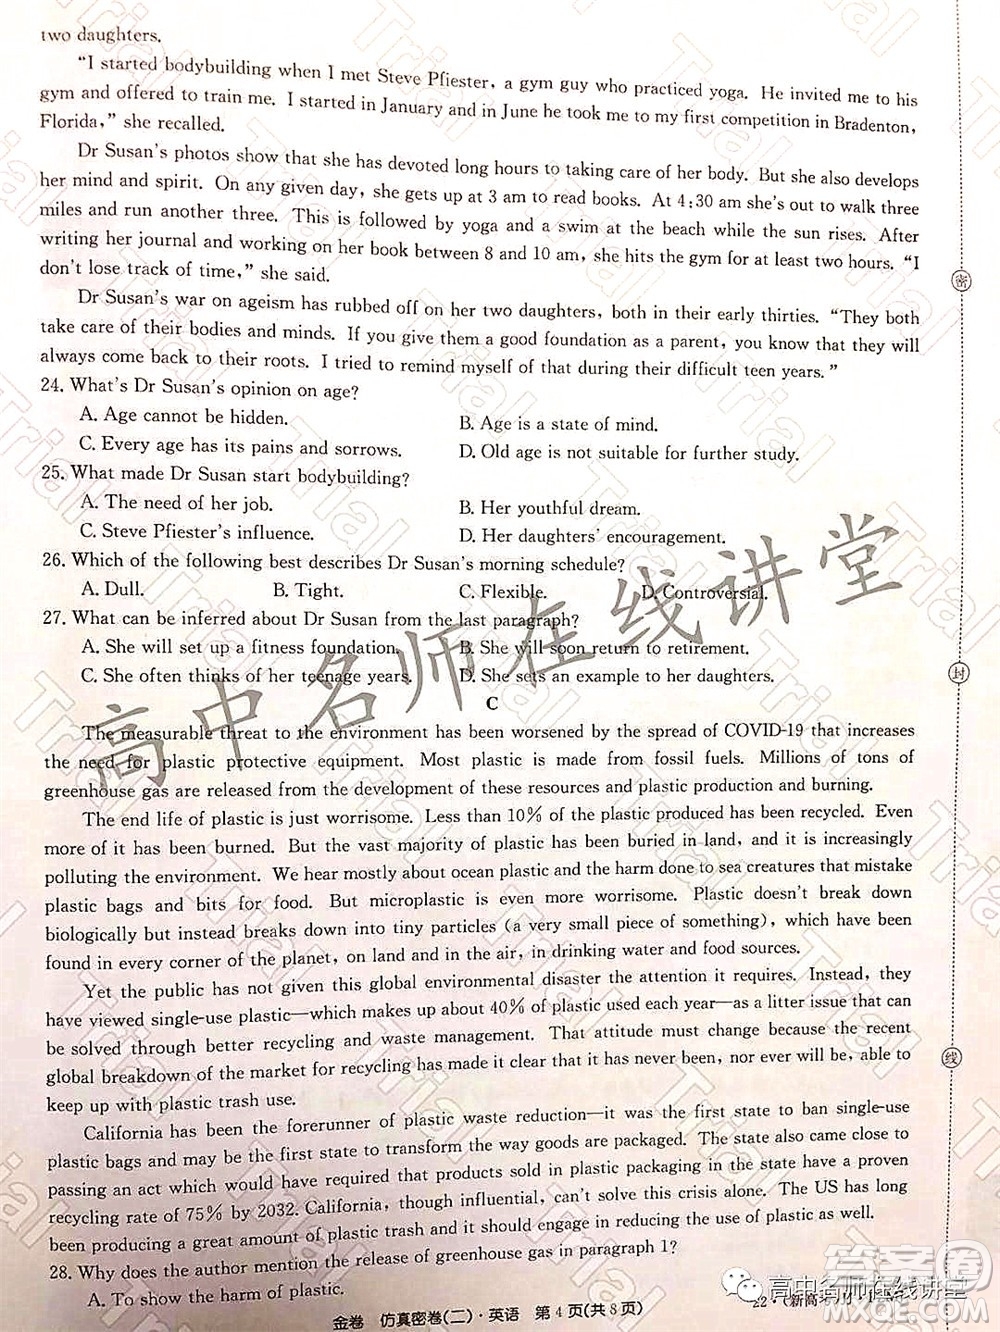 two daughters.
"I started bodybuilding when I met Steve Pfiester, a gym guy who practiced yoga. He invited me to his
gym and offered to train me. I started in January and in June he took me to my first competition in Bradenton,
Florida," she recalled.
Dr Susan's photos show that she has devoted long hours to taking care of her body. But she also develops
her mind and spirit. On any given day, she gets up at 3 am to read books. At 4:30 am she's out to walk three
miles and run another three. This is followed by yoga and a swim at the beach while the sun rises. After
writing her journal and working on her book between 8 and 10 am, she hits the gym for at least two hours. "I
don't lose track of time," she said.
Dr Susan's war on ageism has rubbed off on her two daughters, both in their early thirties. "They both
take care of their bodies and minds. If you give them a good foundation as a parent, you know that they will
always come back to their roots. I tried to remind myself of that during their difficult teen years."
24. What's Dr Susan's opinion on age?
A. Age cannot be hidden. B. Age is a state of mind.
C. Every age has its pains and sorrows. D. Old age is not suitable for further study.
25. What made Dr Susan start bodybuilding?
A. The need of her job. B. Her youthful dream.
C. Steve Pfiester's influence. D. Her daughters' encouragement.
26. Which of the following best describes Dr Susan's morning schedule?
A. Dull. B. Tight. C. Flexible. D. Controversial.
27. What can be inferred about Dr Susan from the last paragraph?
A. She will set up a fitness foundation. B. She will soon return to retirement.
C. She often thinks of her teenage years. D. She sets an example to her daughters.
C
The measurable threat to the environment has been worsened by the spread of COVID-19 that increases
the need for plastic protective equipment. Most plastic is made from fossil fuels. Millions of tons of
greenhouse gas are released from the development of these resources and plastic production and burning.
The end life of plastic is just worrisome. Less than 10% of the plastic produced has been recycled. Even
more of it has been burned. But the vast majority of plastic is buried in land, and it is increasingly
polluting the environment. We mostly hear about ocean plastic and the harm done to sea creatures that mistake
plastic bags and bits for food. But microplastic is even more worrisome. Plastic doesn't break down
biologically but instead breaks down into tiny particles (a very small piece of something), which have been
found in every corner of the planet, on land and in the air, in drinking water and food sources.
Yet the public has not given this global environmental disaster the attention it requires. Instead, they
have viewed single-use plastic—which makes up about 40% of plastic used each year—as a litter issue that can
be solved through better recycling and waste management. That attitude must change because the recent
global breakdown of the market for recycling has made it clear that it has never been, nor will be, able to
keep up with plastic trash use.
California has been the forerunner of plastic waste reduction—it was the first state to ban single-use
plastic bags and may be the first state to transform the way goods are packaged. The state also came close to
passing an act which would have required that products sold in plastic packaging in the state have a proven
recycling rate of 75% by 2032. California, though influential, can't solve this crisis alone. The US has long
been producing a great amount of plastic trash and it should engage in reducing the use of plastic as well.
28. Why does the author mention the release of greenhouse gas in paragraph 1?
A. To show the influence of plastic.
金卷 仿真密卷(二)·英语 第4页(共8页)
密
封
线
高中名师在线讲堂
高中名师在线讲堂
答案圈
MXQE.COM
Trial